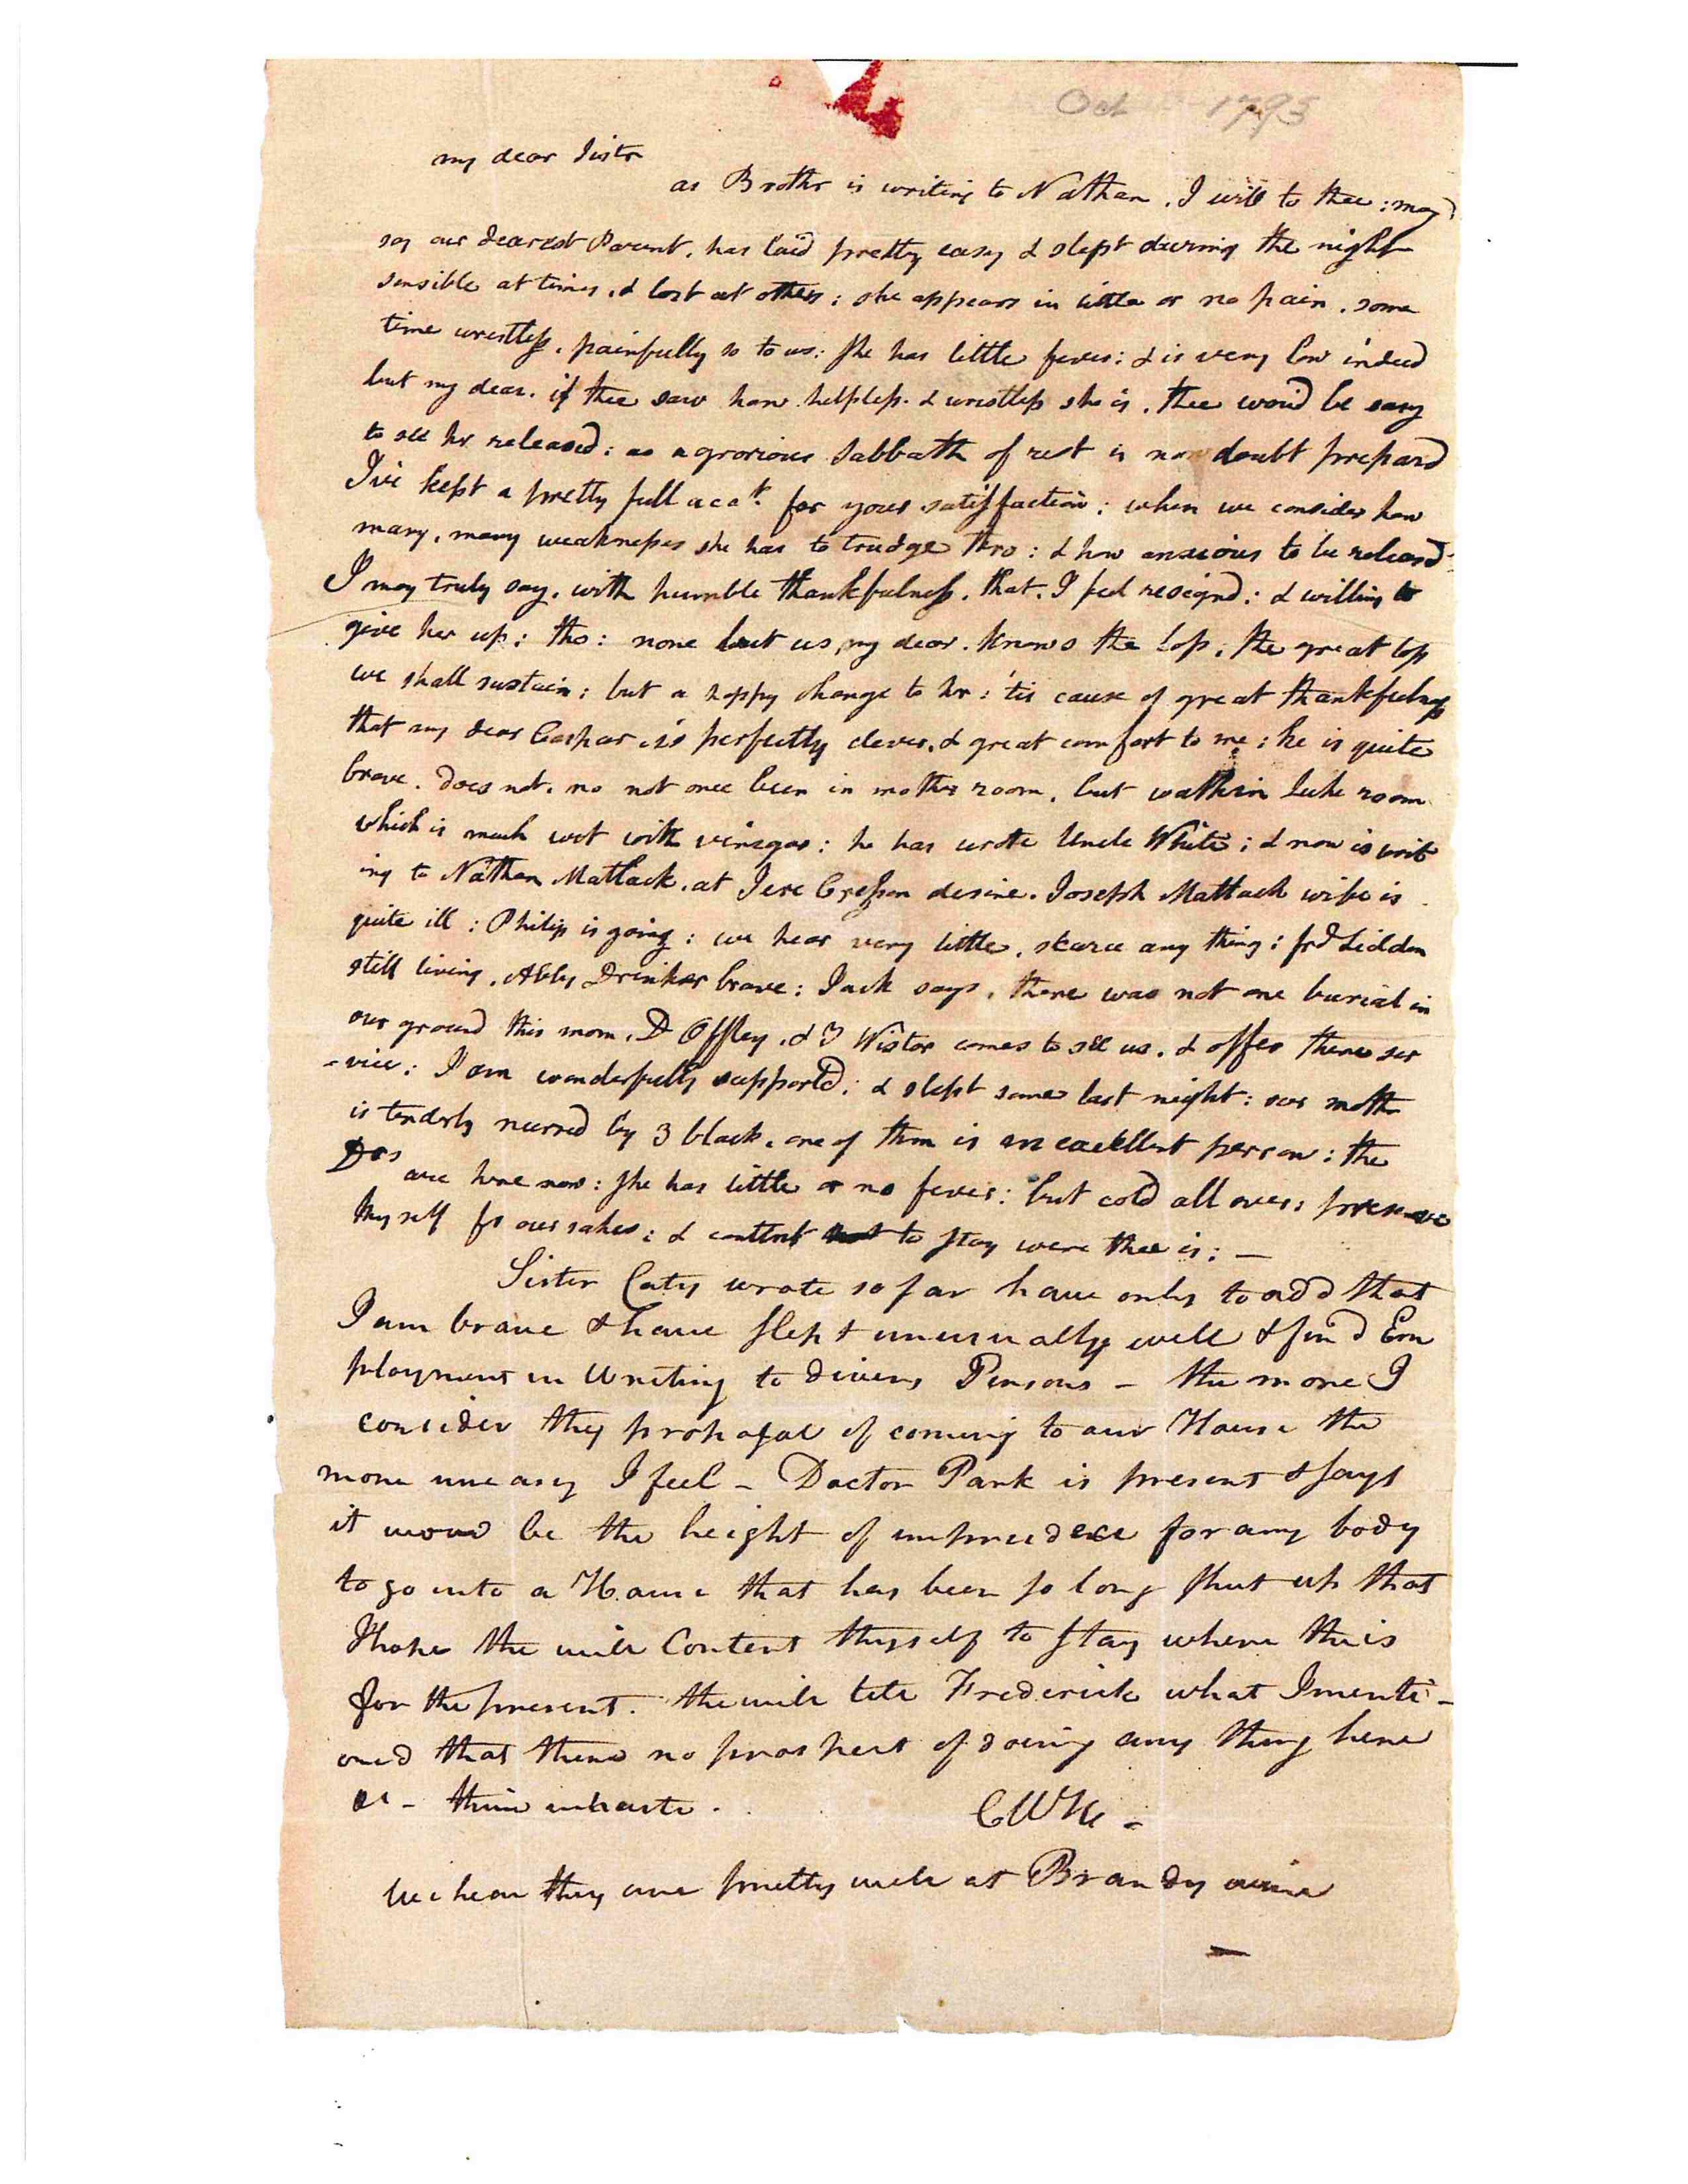 Oct 1793
my dear Sistr
as Brothr is writing to Nathan, I will to thee; may
say our dearest Parent, has laid pretty easy & slept during the night
sensible at times, & lost at others; she appears in little or no pain, some
time wrestless, painfully so to us: she has little fever: & is very low indeed
but my dear, if thee saw how helpless & wrestless she is, thee wou'd be easy
to see hr released: as a grorious Sabbath of rest is no doubt prepard
I've kept a pretty full acct. for your satisfaction; when we consider how
many, many weaknesses she has to trudge thro: & how anxious to be releasd
I may truly say, with humble thankfulness, that, I feel resignd: & willing to
give her up; tho: none but us, my dear, knows the loss, the great loss
we shall sustain; but a happy change to hr: 'tis cause of great thankfulness
that my dear Caspar is perfectly clever, & great comfort to me; he is quite
brave, does not, no not once been in mothrs room, but walks in room
which is much wet with vinegar; he has wrote Uncle White; & now is writ
ing to Nathan Matlack, at Jere Cresson desire. Joseph Matlack wife is
quite ill: Philip is going: we hear very little, skarce any thing; frd Liddon
still living, Abby Drinker brave: Jack says, there was not one burial in
our ground this morn, D Offley, & Wistar comes to see us, & offer there ser
-vice: I am wonderfully supported; & slept some last night: our mothr
is tenderly nursed by 3 black, one of thm is an excellent person: the
Drs are here now: she has little or no fever: but cold all over; preserve
thyself fr our sakes; & contnt to stay were thee is; —
Sister Caty wrote so far have only to add that
I am brave & have slept unusually well & find Em
ployment in Writing to divers Persons — the more I
consider thy proposal of coming to our House the
more uneasy I feel — Doctor Park is present & says
it wou'd be the height of imprudece for any body
to go into a House that has been so long shut up that
I hope the will Content thyself to stay where the is
for the present. the will tell Frederick what I menti-
oned that there no prospect of doing any thing here
— thine in haste.
CWH —
We hear they are pretty well at Brandywine